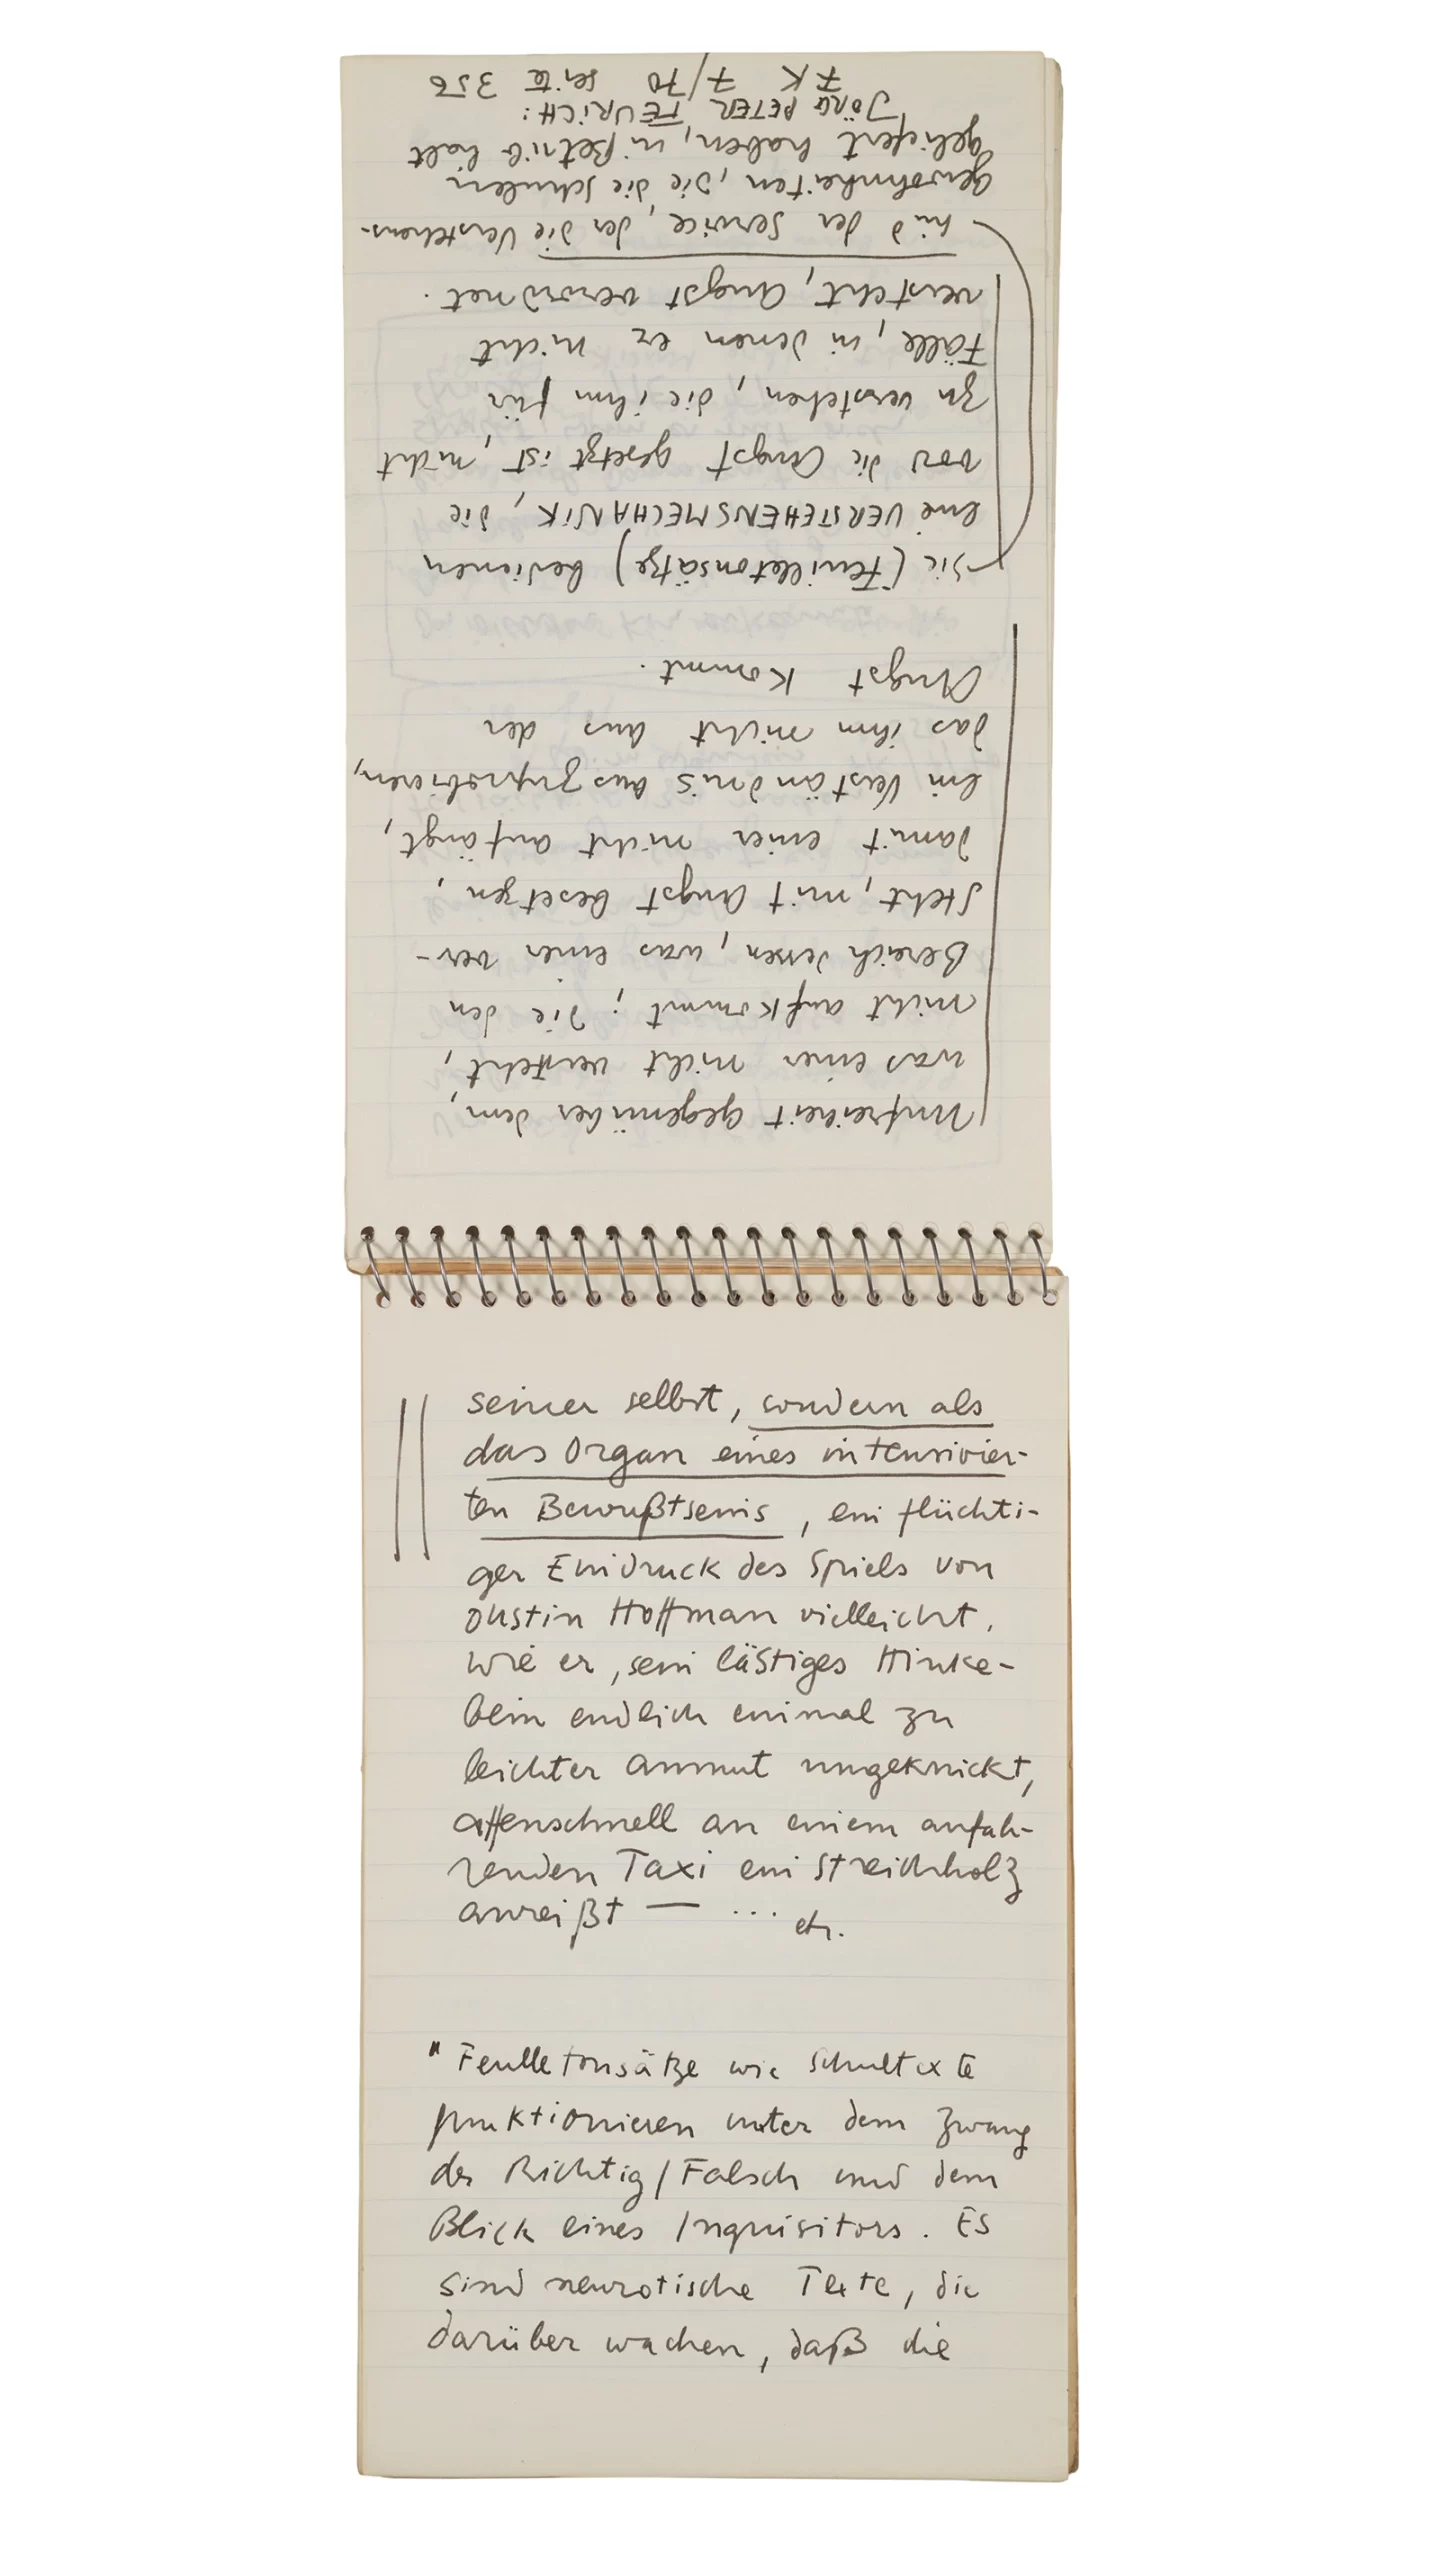 seiner selbst, sondern als
das Organ eines intensivier-
ten Bewußtseins, ein flüchti-
ger Eindruck des Spiels von
Dustin Hoffman vielleicht,
wie er, sein lästiges Hinke-
bein endlich einmal zu
leichter Anmut umgeknickt,
affenschnell an einem anfah-
renden Taxi ein Streichholz
anreißt — ... etc.
"Feulletonsätze wie Schultexte
funktionieren unter dem Zwang
des Richtig/Falsch und dem
Blick eines Inquisitors. Es
sind neurotische Texte, die
darüber wachen, daß die
Unfreiheit gegenüber dem,
was einer nicht versteht,
nicht aufkommt; die den
Bereich dessen, was einer ver-
steht, mit Angst besetzen,
damit einer nicht anfängt,
ein Verständnis auszuprobieren,
das ihm nicht aus der
Angst kommt.
Sie (Feuilletonsätze) bedienen
eine VERSTEHENSMECHANIK, die
vor die Angst gesetzt ist, nicht
zu verstehen, die ihm für
Fälle, in denen er nicht
versteht, Angst verordnet.
sind der Service, der die Verstehens-
gewohnheiten, die die Schulen
geliefert haben, in Betrieb hält
JÖRG PETER FEURICH:
FK 7/70 Seite 356